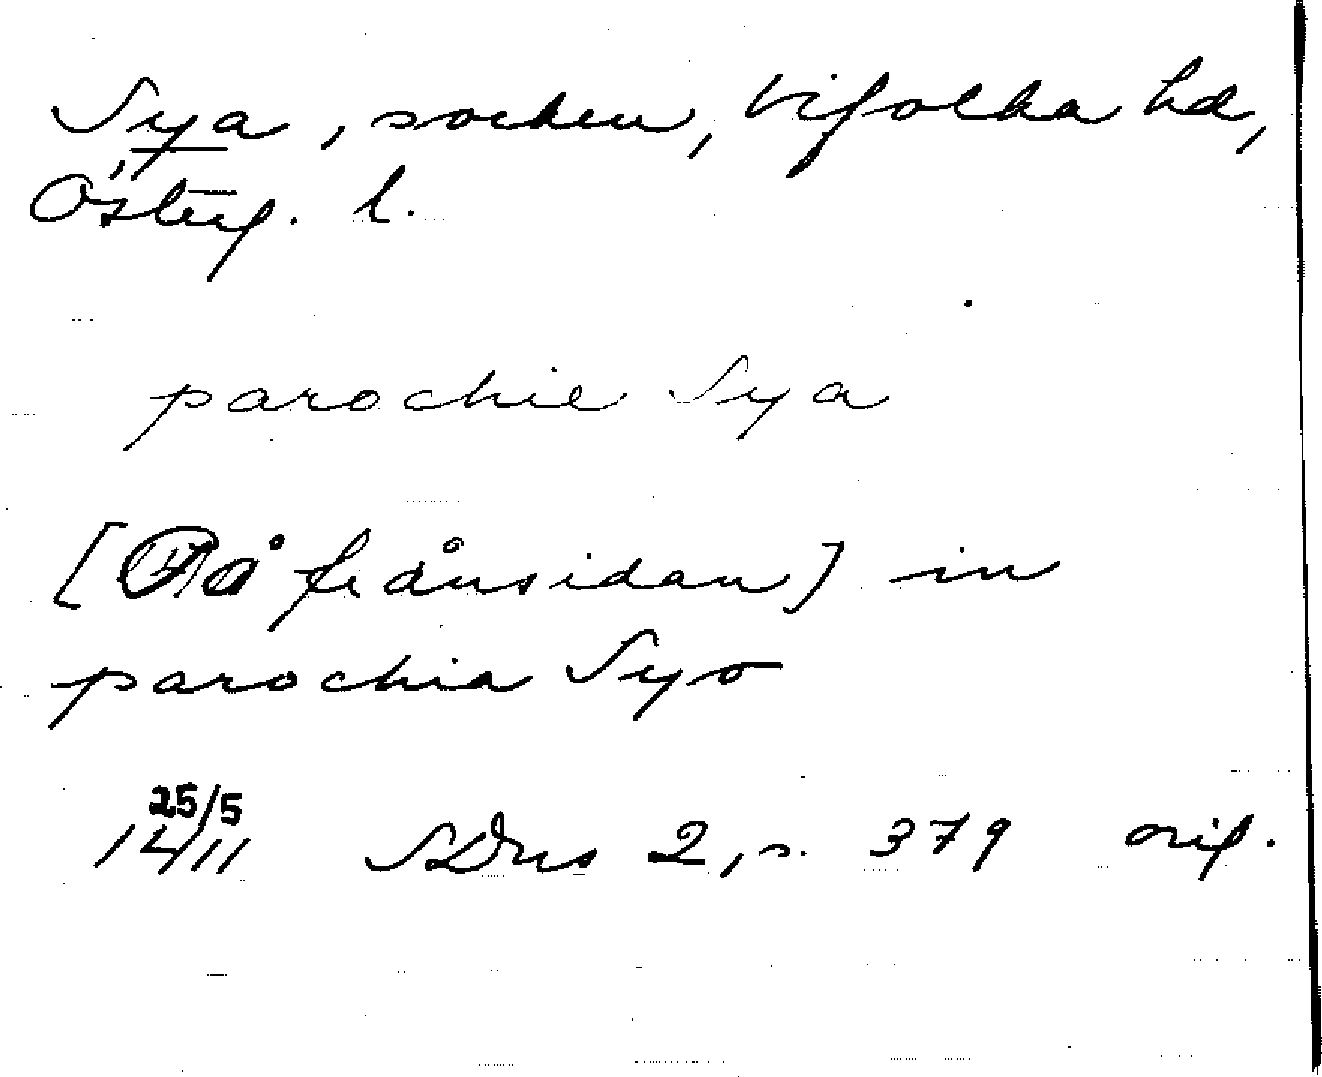 Sya, socken, Vifolka hd,
Österg. l.
parochie Sya
[På frånsidan] in
parochia Syo
25/5
1411 SDns 2, s. 379 orig.